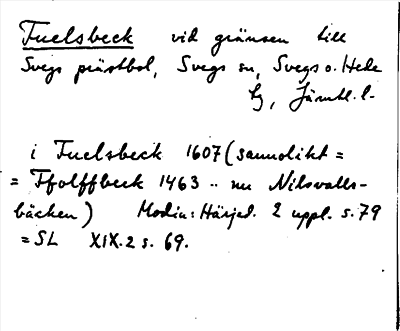 Fuelsbeck vid gränsen till
Svegs prästbol, Svegs sn, Svegs o. Hede
tg, Jämtl. l.
i Fuelsbeck 1607 (sannolikt =
= Ffolffbeck 1463 .. nu Nilsvalls-
bäcken) Modin: Härjed. 2 uppl. s. 79
= SL XIX. 2 s. 69.